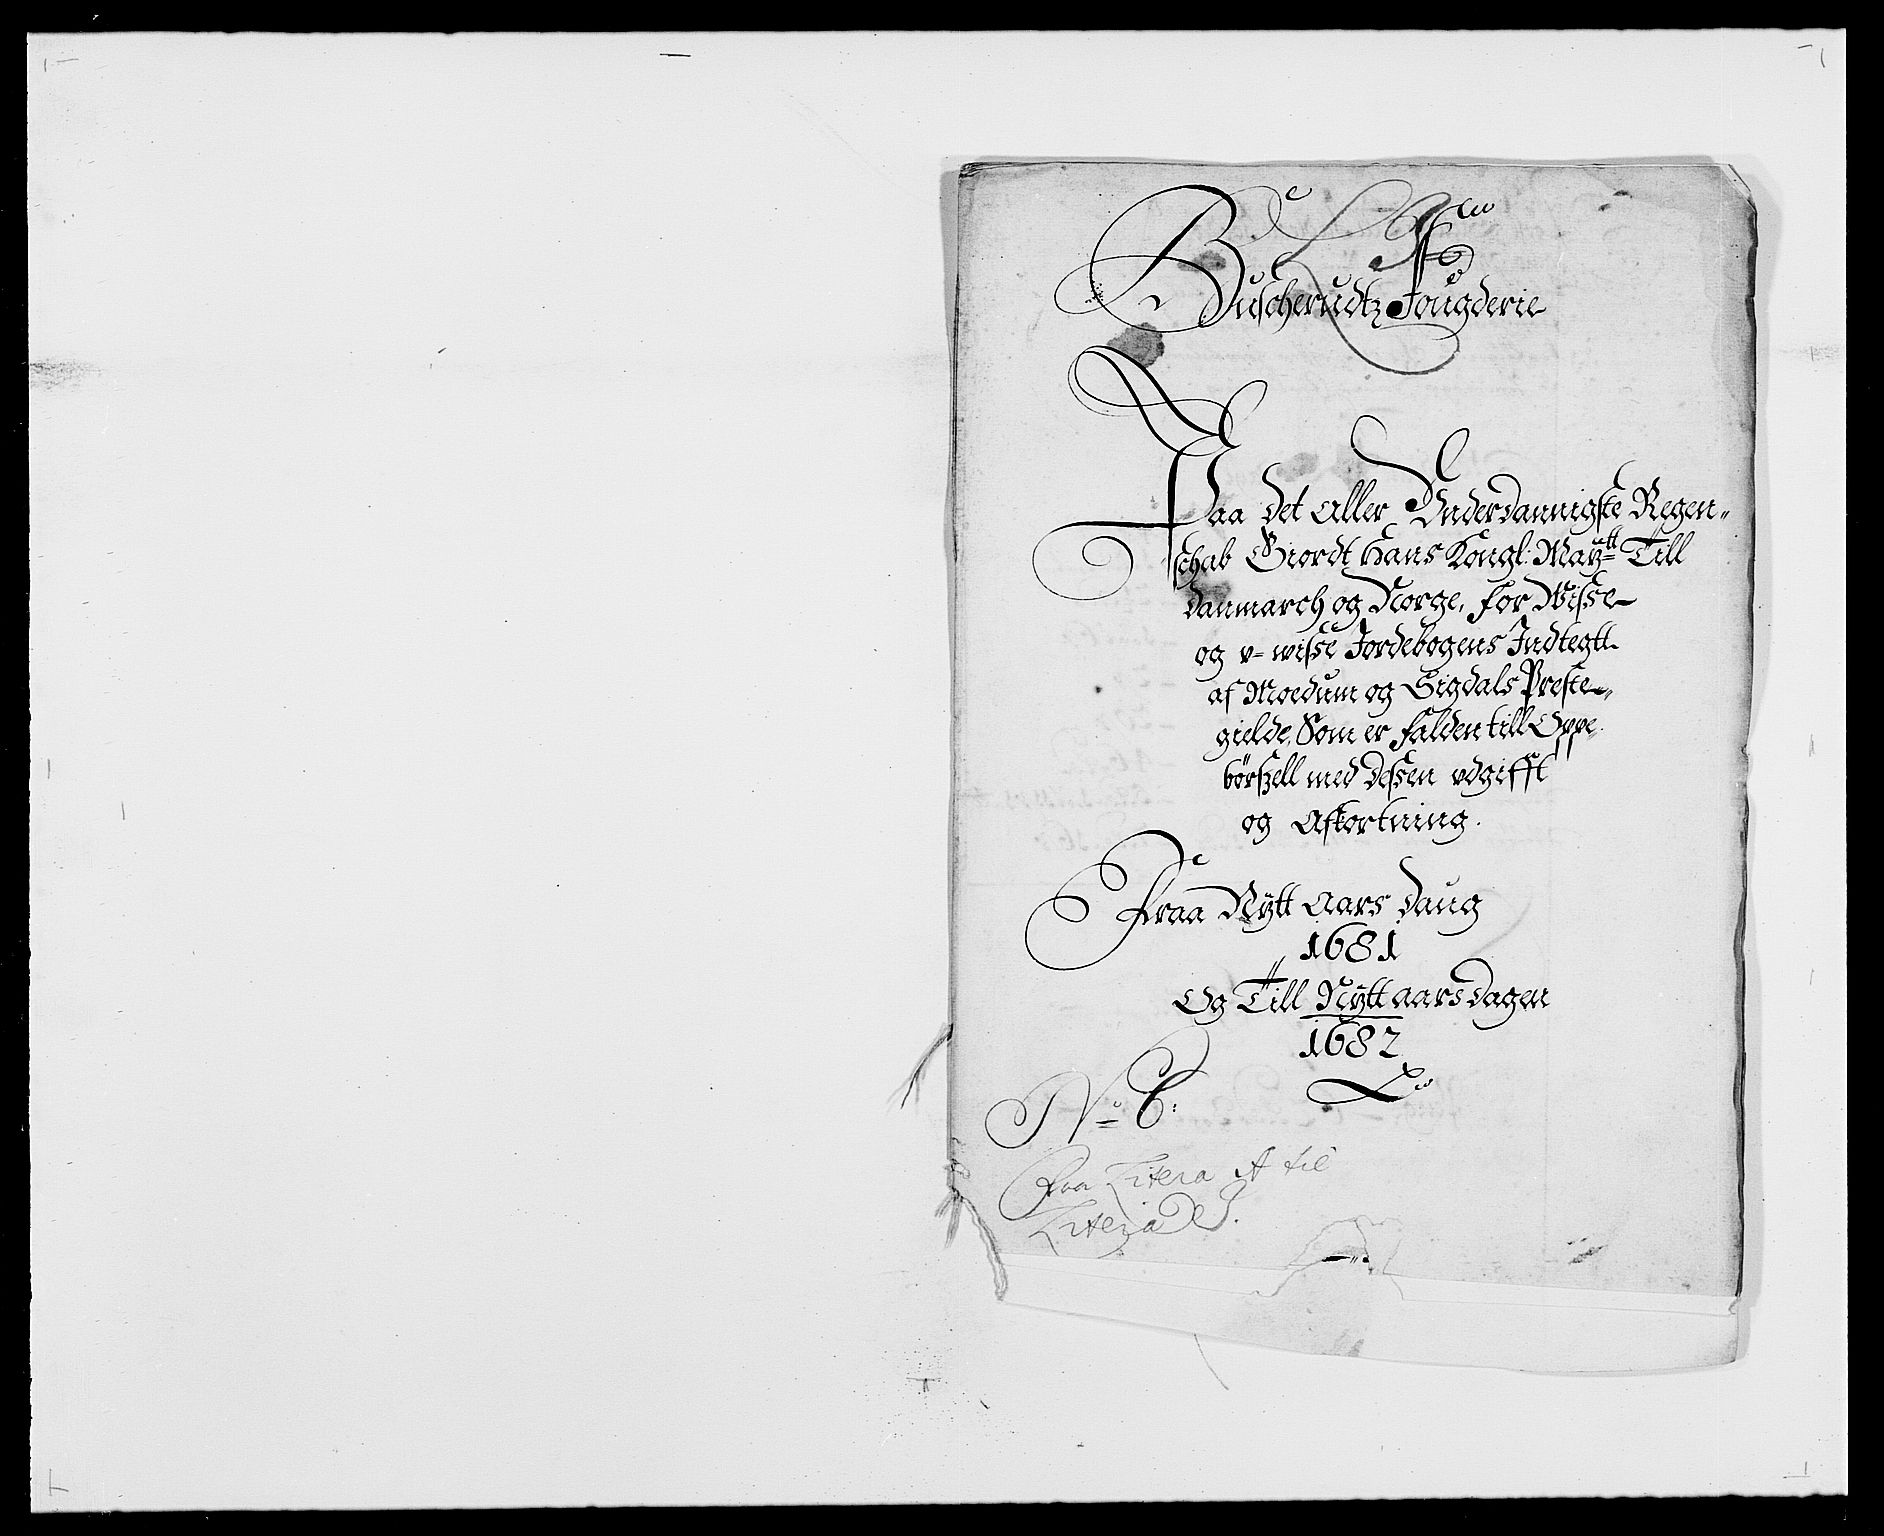 Buscherudtz Fougderie
Paa det Aller Vnderdannigste Regen„
schab Giordt Hans Kongl: Maytt Till
danmarch og Norge, for Wisse
og v= wisse Jordebogens Indtegtt
af Moedum og Sigdals Preste„
gielde, Som er falden till Oppe
børszell med dessen vdgifft
og Afkortning.
Fraa Nytt Aars daug
1681
Og Till Nytt aars dagen
1682
No 6:
Fraa Litera A til
Litera